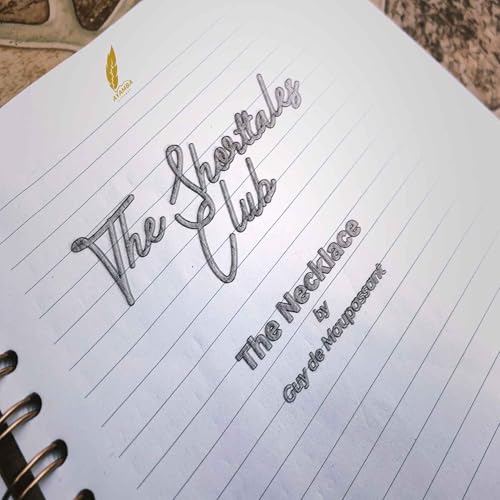 AYAMBA
The Shorttales
Club
The Necklace
by
Guy de Maupassant